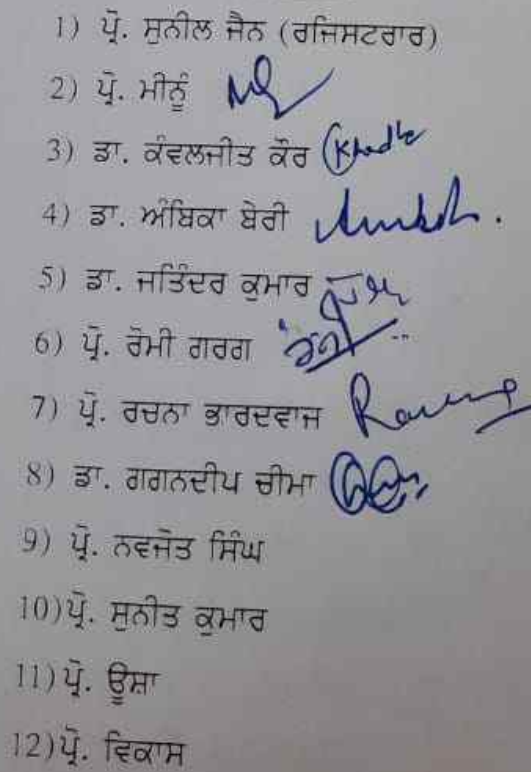 1) ਪ੍ਰੋ. ਸੁਨੀਲ ਜੈਨ (ਰਜਿਸਟਰਾਰ)
2) ਪ੍ਰੋ. ਮੀਨੂੰ
3) ਡਾ. ਕੰਵਲਜੀਤ ਕੌਰ
4) ਡਾ. ਅੰਬਿਕਾ ਬੇਰੀ
5) ਡਾ. ਜਤਿੰਦਰ ਕੁਮਾਰ
6) ਪ੍ਰੋ. ਰੋਮੀ ਗਰਗ
7) ਪ੍ਰੋ. ਰਚਨਾ ਭਾਰਦਵਾਜ
8) ਡਾ. ਗਗਨਦੀਪ ਚੀਮਾ
9) ਪ੍ਰੋ. ਨਵਜੋਤ ਸਿੰਘ
10)ਪ੍ਰੋ. ਸੁਨੀਤ ਕੁਮਾਰ
11)ਪ੍ਰੋ. ਊਸ਼ਾ
12)ਪ੍ਰੋ. ਵਿਕਾਸ